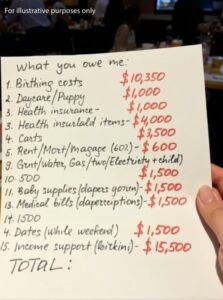 For illustrative purposes only
What you owe me:
1. Birthing costs $10,350
2. Daycare/Puppy $1,000
3. Health insurance- $1,000
3. Health insurlald items- $4,000
4. Carts $3,500
5. Rent/Mort/Magage (602) - $600
9. Grnt/Water, Gas/two/Electriety + child)
10. 500 $1,500
11. Baby supplies (dapers gorum)- $1,500
13. Medical bills (daperceiptions)- $1,500
14. 1500
4. Dates (While weekend) $1,500
15. Income support (birkini)- $15,500
TOTAL: